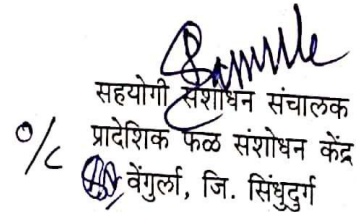 सहयोगी संशोधन संचालक
o/c प्रादेशिक फळ संशोधन केंद्र
वेंगुर्ला, जि. सिंधुदुर्ग